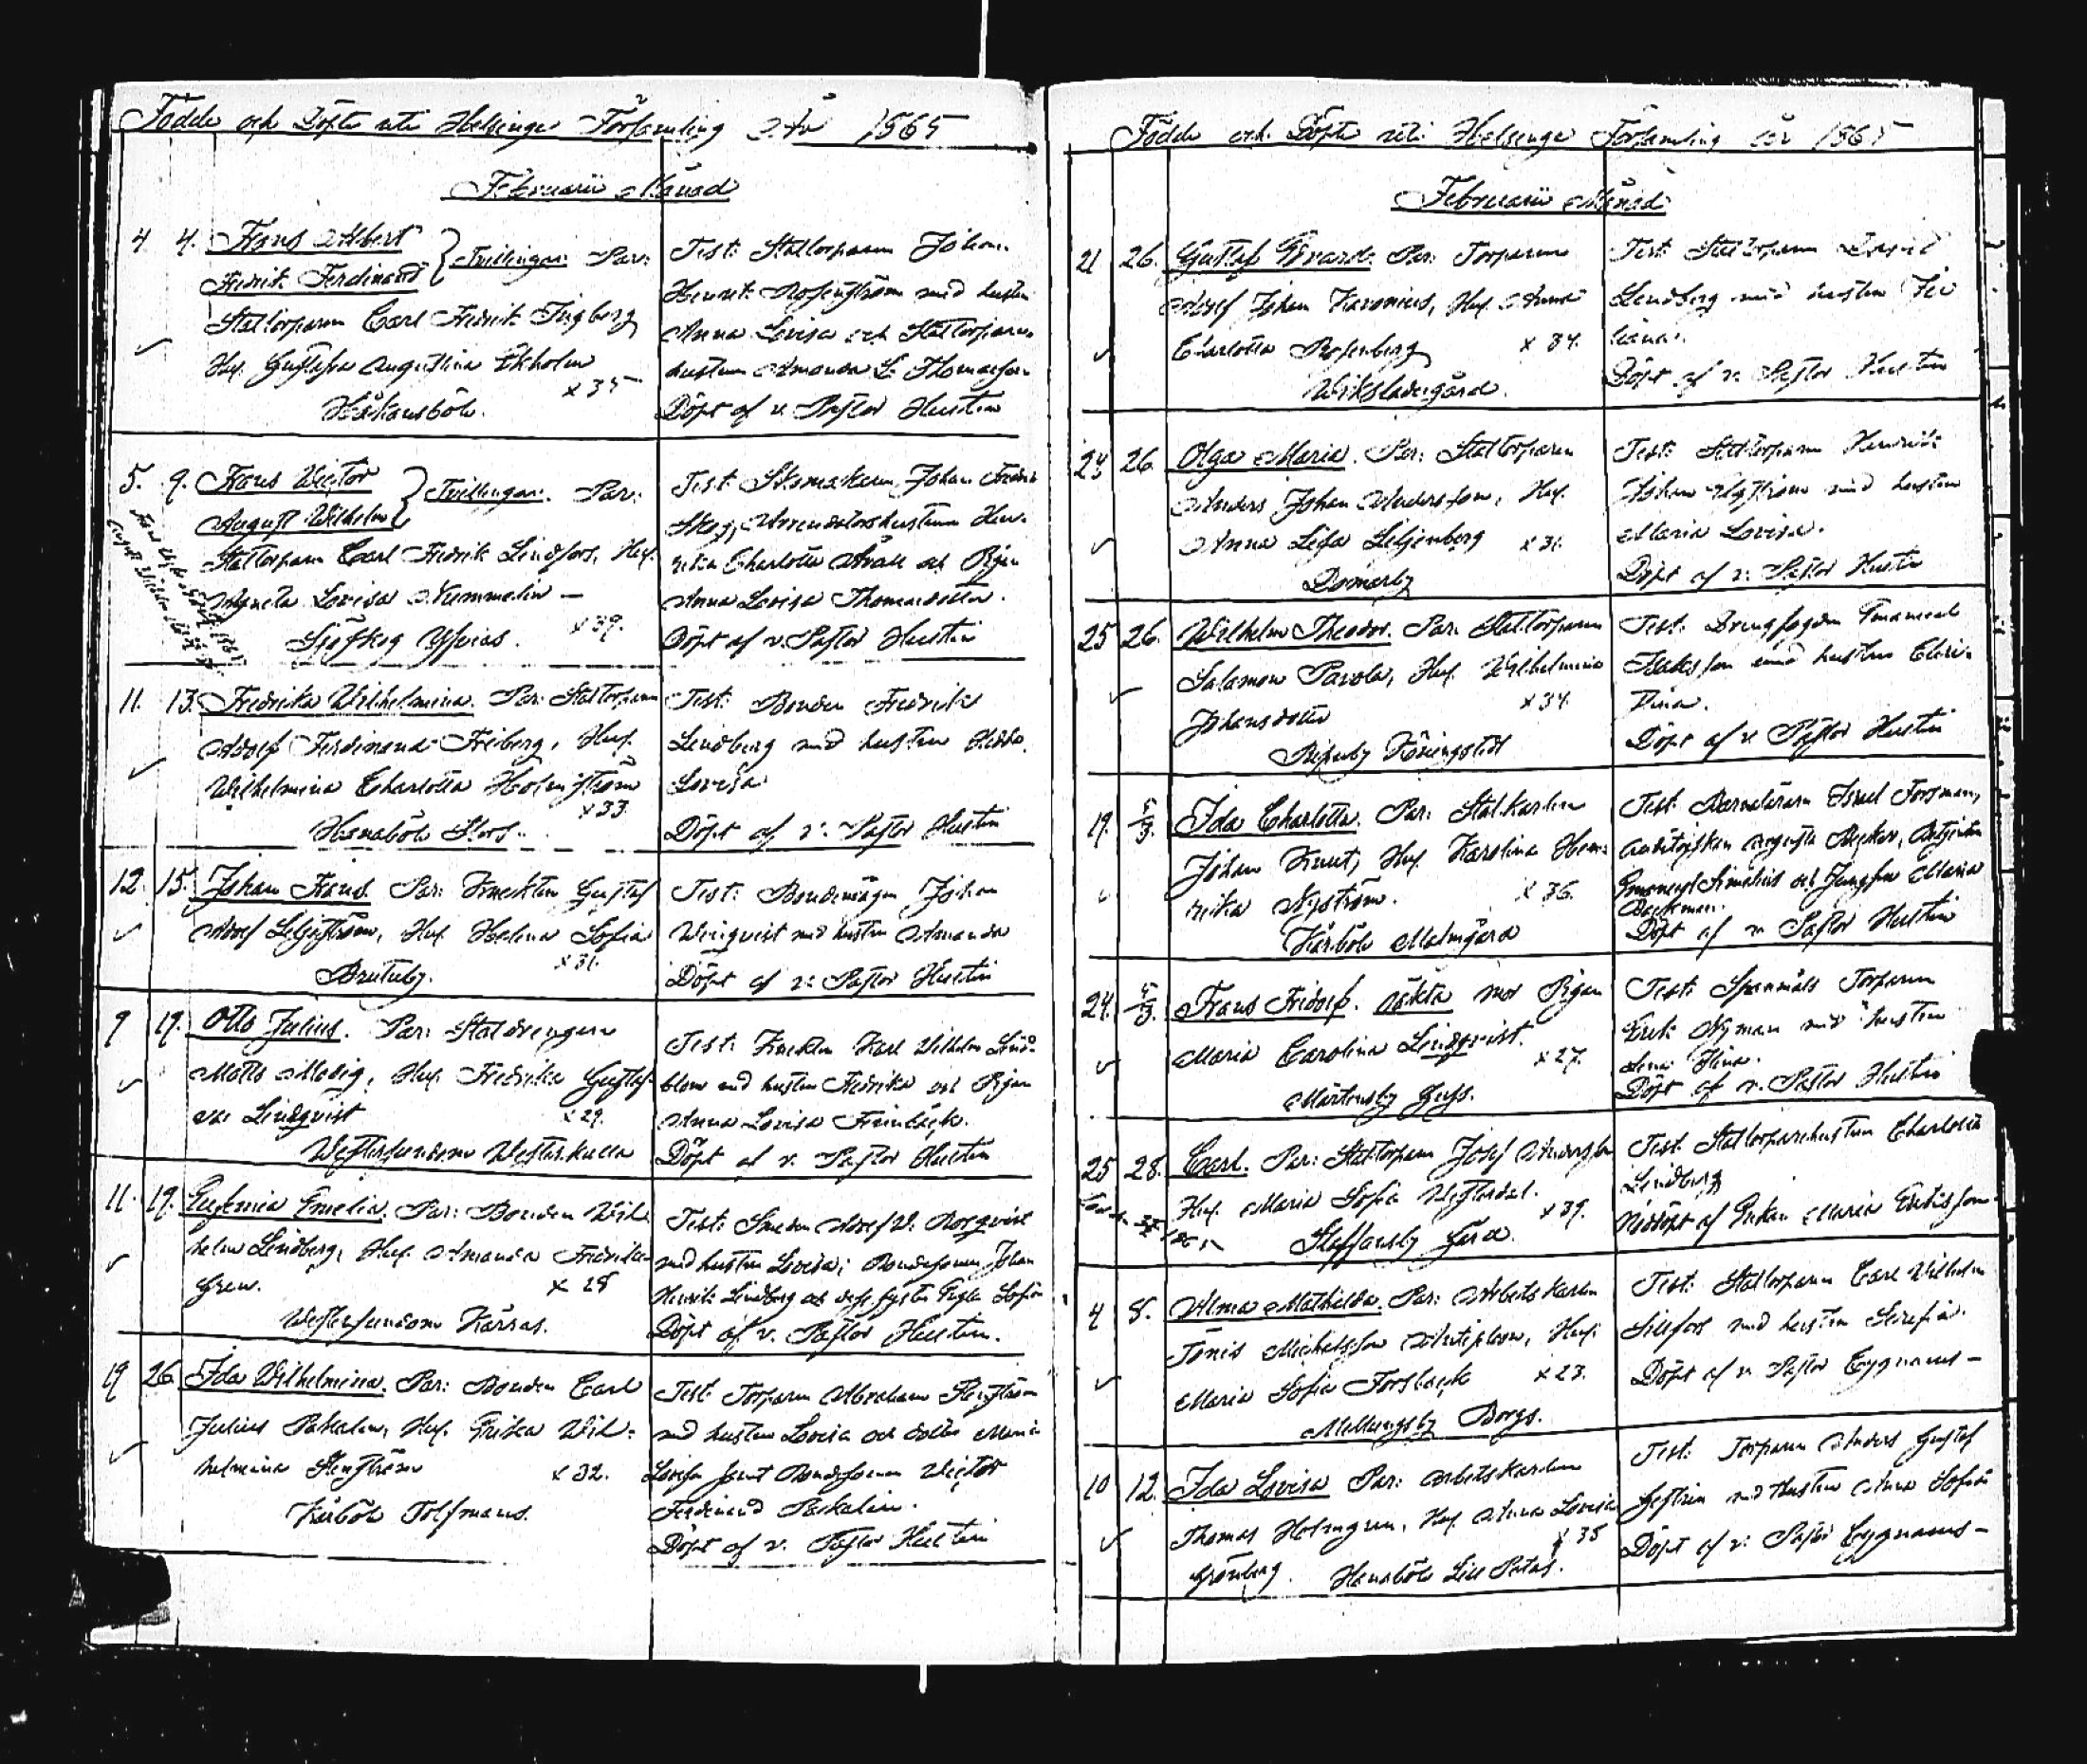 Födde och Döpte uti Helsinge Församling År 1865
Februarii Månad
4 4. Frans Albert
Fredrik Ferdinand } Tvillingar. Par:
Stattorparen Carl Fredrik Tngberg
Hu. Gustafva Augustina Ekholm
x 35
Håkansböle.
Test: Stattorparen Johan
Henrik Rosenström med hustru
Anna Lovisa och Stattorpare-
hustrun Amanda L. Thomasson
Döpt af v. Pastor Hustin
5. 9. Frans Victor
August Wilhelm } Tvillingar. Par:
Stattorparen Carl Fredrik Lindfors, Hu.
Agneta Lovisa Nummelin –
x 39.
Sjöskog
Test: Skomakaren Johan Fredrik
Skog, Arrendatorshustrun Hen-
rika Charlotta och Pigan
Anna Lovisa Thomasdotter.
Döpt af v. Pastor Hustin
11. 13. Fredrika Wilhelmina. Par: Stattorparen
Adolf Ferdinand Friberg, Hu.
Wilhelmina Charlotta Holmström
x 33.
Hanaböle Skos.
Test: Bonden Fredrik
Lindberg med hustru Hedda
Lovisa
Döpt af v. Pastor Hustin
12. 15. Johan Frans. Par: Knekten Gustaf
Adolf Liljeström, Hu. Helena Sofia
x 31.
Brutuby.
Test: Bondemågen Johan
Winqvist med hustru Amanda
Döpt af v. Pastor Hustin
9 19. Otto Julius. Par: Statdrengen
Matts Modig, Hu. Fredrika Gustaf-
va Lindqvist
x 29.
Westersundom Westerkulla
Test: Knekten Karl Wilhelm Lind-
blom med hustru Fredrika och Pigan
Anna Lovisa
Döpt af v. Pastor Hustin
11. 19. Eufemia Emelia. Par: Bonden Wil-
helm Lindberg, Hu. Amanda Fredrika
Gren.
x 28
Westersundom Kärras.
Test: Smeden Adolf W. Borgqvist
med hustru Lovisa; Bondesonen Johan
Henrik Lindberg och dess syster Sofia
Döpt af v. Pastor Hustin.
19 26. Ida Wilhelmina. Par: Bonden Carl
Julius Pakalen, Hu. Erika Wil-
helmina Stenström
x 32.
Kårböle Tolfmans.
Test: Torparen Abraham Stenström
med hustru Lovisa och dotter Maria
Lovisa samt Bondesonen Victor
Ferdinand Pakalen.
Döpt af v. Pastor Hustin
Födde och Döpte uti Helsinge Församling år 1865
Februarii Månad
21 26. Gustaf Edvard. Par: Torparen
Adolf Johan Karonius, Hu. Anna
Charlotta Rosenberg
x 34.
Wiksladugård.
Test: Stattorparen David
Lindberg med hustru
Döpt af v. Pastor Hustin
24 26. Olga Maria. Par: Stattorparen
Anders Johan Andersson, Hu.
Anna Lisa Liljenberg x 31.
Domarby
Test: Stattorparen Henrik
Johan Nyström med hustru
Maria Lovisa.
Döpt af v. Pastor Hustin
25 26. Wilhelm Theodor. Par: Stattorparen
Salamon Pavola, Hu. Wilhelmina
x 34.
Johansdotter
Ripuby Köningstedt
Test: Drengfogden Emanuel
Isaksson med hustru Chris-
tina.
Döpt af v. Pastor Hustin
19. 5/3. Ida Charlotta. Par: Statkarlen
Johan Knut, Hu. Karolina Hen-
rika Nyström.
x 36.
Kårböle Malmgård
Test: Barnalärarn Israel Forsman,
Augusta
Emanuel och Jungfru Maria
Backman.
Döpt af v. Pastor Hustin
24. 5/3. Frans Fridolf. oäkta mor Pigan
Maria Carolina Lindqvist.
x 27.
Mårtensby Juss.
Test: Spannmåls Torparen
Erik Nyman med hustru
Lena Stina.
Döpt af v. Pastor Hustin
25 28. Carl. Par: Stattorparen Josef Andersson
Hu. Maria Sofia Westerdal.
x 39.
Staffansby Gård.
Test. Stattorparehustrun Charlotta
Lindberg
Nöddöpt af Enkan Maria Eriksson
4 8. Alma Mathilda. Par: Arbetskarlen
Tönis Michelsson Antipson, Hu.
Maria Sofia Forsback x 23.
Mellungsby Borgs.
Test: Stattorparen Carl Wilhelm
Sillfors med hustru Serafia.
Döpt af v. Pastor Cygnæus –
10 12. Ida Lovisa Par: Arbetskarlen
Thomas Holmgren, Hu. Anna Lovisa
x 35
Grönberg. Hanaböle Lill Patas.
Test: Torparen Anders Gustaf
Gestrin med hustru Anna Sofia
Döpt af v. Pastor Cygnæus –